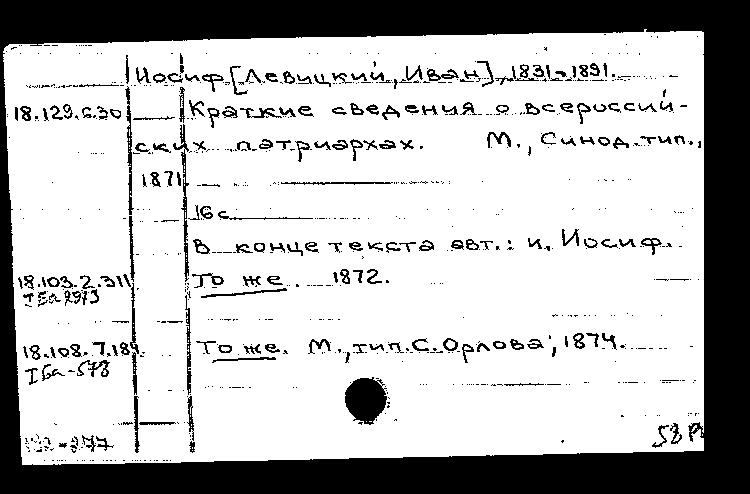 Иосиф [Левицкий, Иван], 1831-1891.
18.129.6.30 Краткие сведения о всероссий-
ских патриархах. М., Синод. тип.,
1871.
16 с.
В конце текста авт.: и. Иосиф.
18.103.2.311 То же. 1872.
18.108.7.189. То же. М., тип. С. Орлова, 1874.
IБа-578